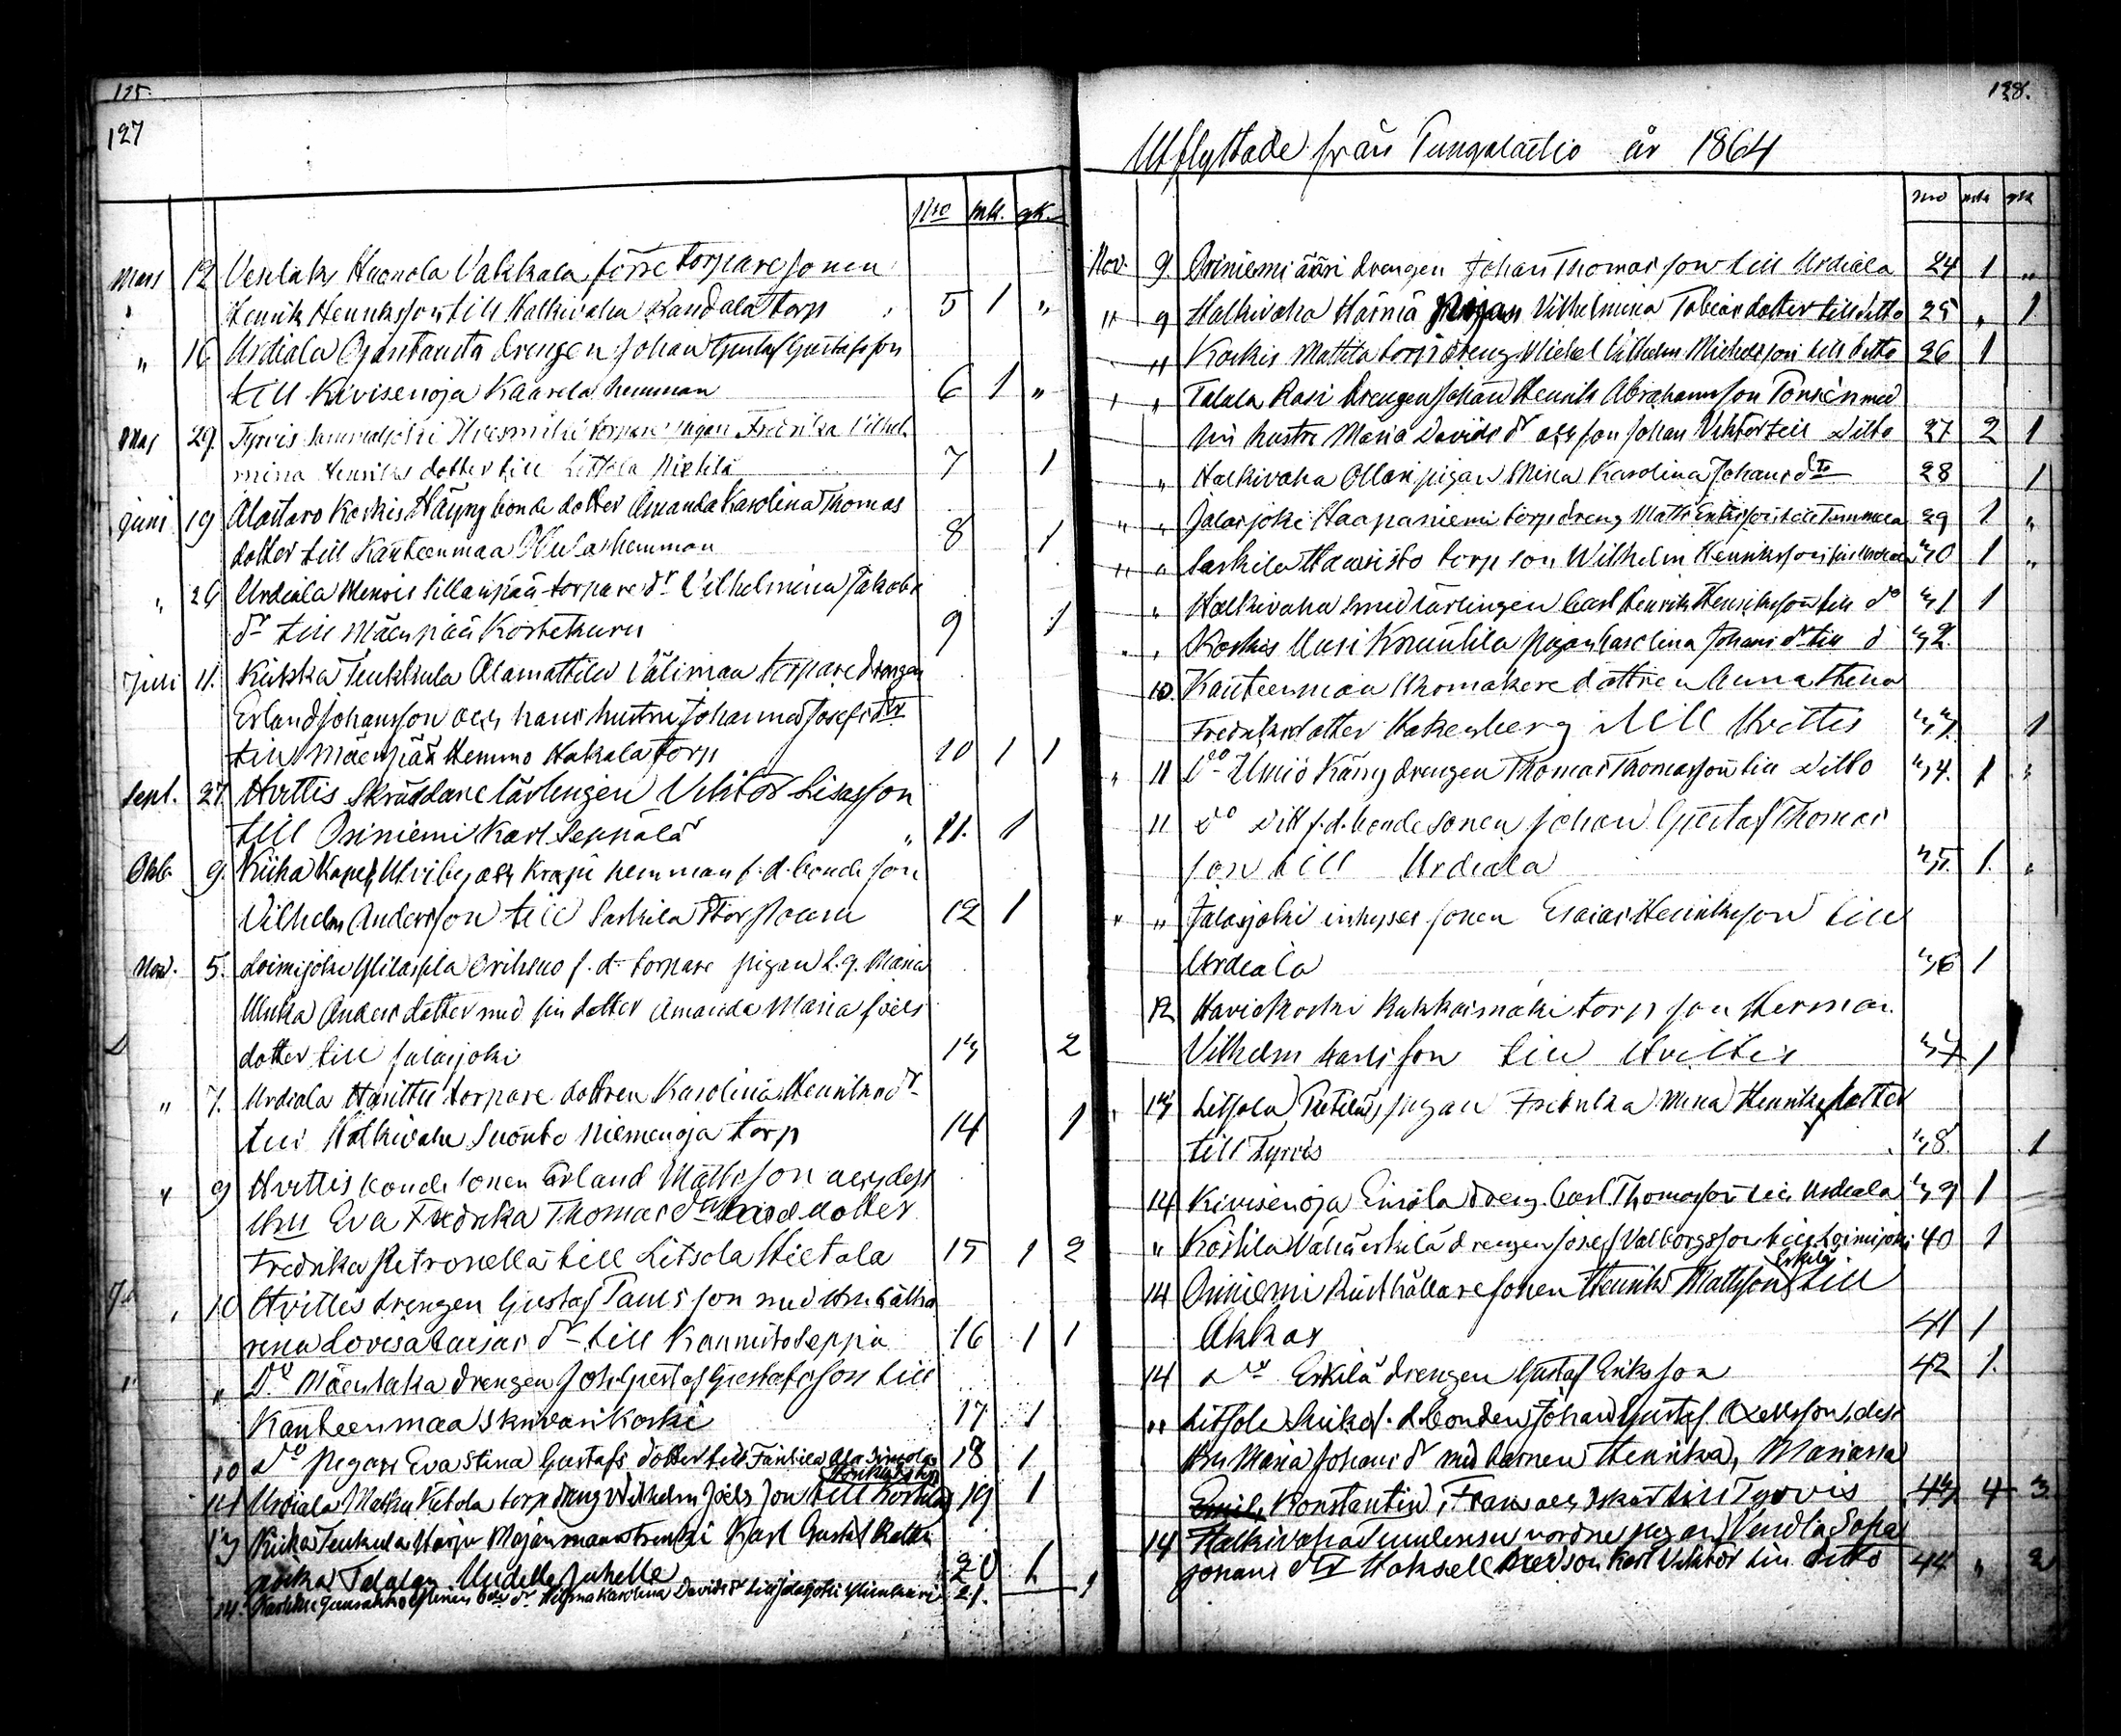 125.
127
Nro mk. qk.
Mars 12 Vesilaks Haonola Vakkala förre torpare sonen
" Henrik Henriksson till Halkivaha Kandala torp 5 1 "
" 16 Urdiala Ojantausta drengen Johan Gustaf Gustafsson
till Kivisenoja Kaarela hemman 6 1 "
Maj 29. Tyrvis torpare pigan Fredrika Vilhel
mina Henriks dotter till Litsola Pietilä 7 1
Juni 19 Alastaro Koskis Häyny bonde dotter Amanda Karolina Thomas
dotter till Kanteenmaa Ollila hemman 8 1
" 26 Urdiala Menois Sillanpää torpare dr Vilhelmina Jakobs
dr till Mäenpää 9 1
Juli 11. Kiikka Tiukkula Alamattila Välimaa torpare drengen
Erland Johansson och hans hustru Johanna Josefs dtr
till Mäenpää Hemmo Hakala torp 10 1 1
Sept. 27 Hvittis Skräddare lärlingen Viktor Lisasson
till Oriniemi Karl Seppälä " 11. 1
Okb. 9. Kiika Kapell Ulviby och Kraju hemman f. d. bonde son
Vilhelm Andersson till Sarkila Storstauru 12 1
Nov. 5. Loimijoki Ylilaspla Orihsuo f. d. torpare pigan L. q. Maria
Ulrika Anders dotter med sin dotter Amanda Maria Joels
dotter till Jalasjoki 13 2
" 7. Urdiala Hanittu torpare dottren Karolina Henriks dr
till Halkivaha Suonto Niemenoja torp 14 1
" 9 Hvittis bonde sonen Erland Mattsson och dess
Hru Eva Fredrika Thomas dtr med dotter
Fredrika Petronella till Litsola Hietala 15 1 2
" 10 Hvittis drengen Gustaf Tamsson med Hru Catha
rina Lovisa Caisas dr till Kannisto Seppä 16 1 1
" Do Mäentaka drengen Joh. Gustaf Gustafsson till
Kanteenmaa Skrivari Koski 17 1
10 Do Pigan Eva Stina Gustafs dotter till Fäntilä Ala Simola 18 1
11 Urdiala Matku Kutola torp dreng Vilhelm Joels son till Kostila 19 1
13 Kiika Tiukula Harju Majanmaa Karl Gustaf
Talalan Uudelle Juhelle 20 1
14. Karolina Davids dr till Jalasjoki 21.
128.
Utflyttade från Pungalaitio år 1864
Nro mk qk
Nov. 9. Oriniemi ääri drengen Johan Thomasson till Urdiala 24 1 "
" 9 Halkivaha Härniä Pigan Vilhelmina Tobias dotter till ditto 25 " 1
" Koskis Mattila torp dreng Michel Vilhelm Michelsson till ditto 26 1
" " Talala Rasi Drengen Johan Henrik Abrahamsson Ponsén med
sin hustru Maria Davids dr och son Johan Viktor till Ditto 27 2 1
" Halkivaha Ollari pigan Miina Karolina Johans dtr 28 1
" " Jalasjoki Haapaniemi torp dreng Matts Eriksson till Tammela 29 1 "
" " Sarkila Hanisto torp son Wilhelm Henriksson till Urdiala 30 1 "
" Halkivaha smed lärlingen Carl Henrik Henriksson till do 31 1
" " Koskis Uusi Knuutila pigan Carolina Johans dr till d 32.
10. Kanteenmaa Skomakare dottren Anna Stina
Fredriks dotter Hakenberg till Hvittis 33. 1
" 11 Do Ulmiö Käsny drengen Thomas Thomasson till Ditto 34. 1 "
11 Do Ditt f. d. bonde sonen Johan Gustaf Thomas
son till Urdiala 35. 1. "
" " Jalasjoki inhyses sonen Esaias Henriksson till
Urdiala 36 1
12. Haviokoski Kukkaismäki torp son Herman
Vilhelm Karlsson till Hvittis 37 1
" 13 Litsola Pietilä pigan Fredrika Mina Henriks dotter
till Tyrvis 38. 1
14 Kivisenoja Einola dreng Carl Thomasson till Urdiala 39 1
" Kostila Vähäerkilä drengen Josef Valborgsson till Loimijoki 40 1
Erkilä
14 Oriniemi Rusthållare sonen Henrik Mattsson till
Akkas 41 1
14 Do Erkilä drengen Gustaf Eriksson 42 1.
" Litsola f. d. bonden Johan Gustaf Axelsson, dess
Hru Maria Johans dr med barnen Henrika, Mariana
Emil, Konstantin, Frans och Oskar till Tyrvis 43 4 3
14 Halkivaha pigan Vendla Sofia
Johans dtr Hoksell med son Karl Viktor till ditto 44 " 2